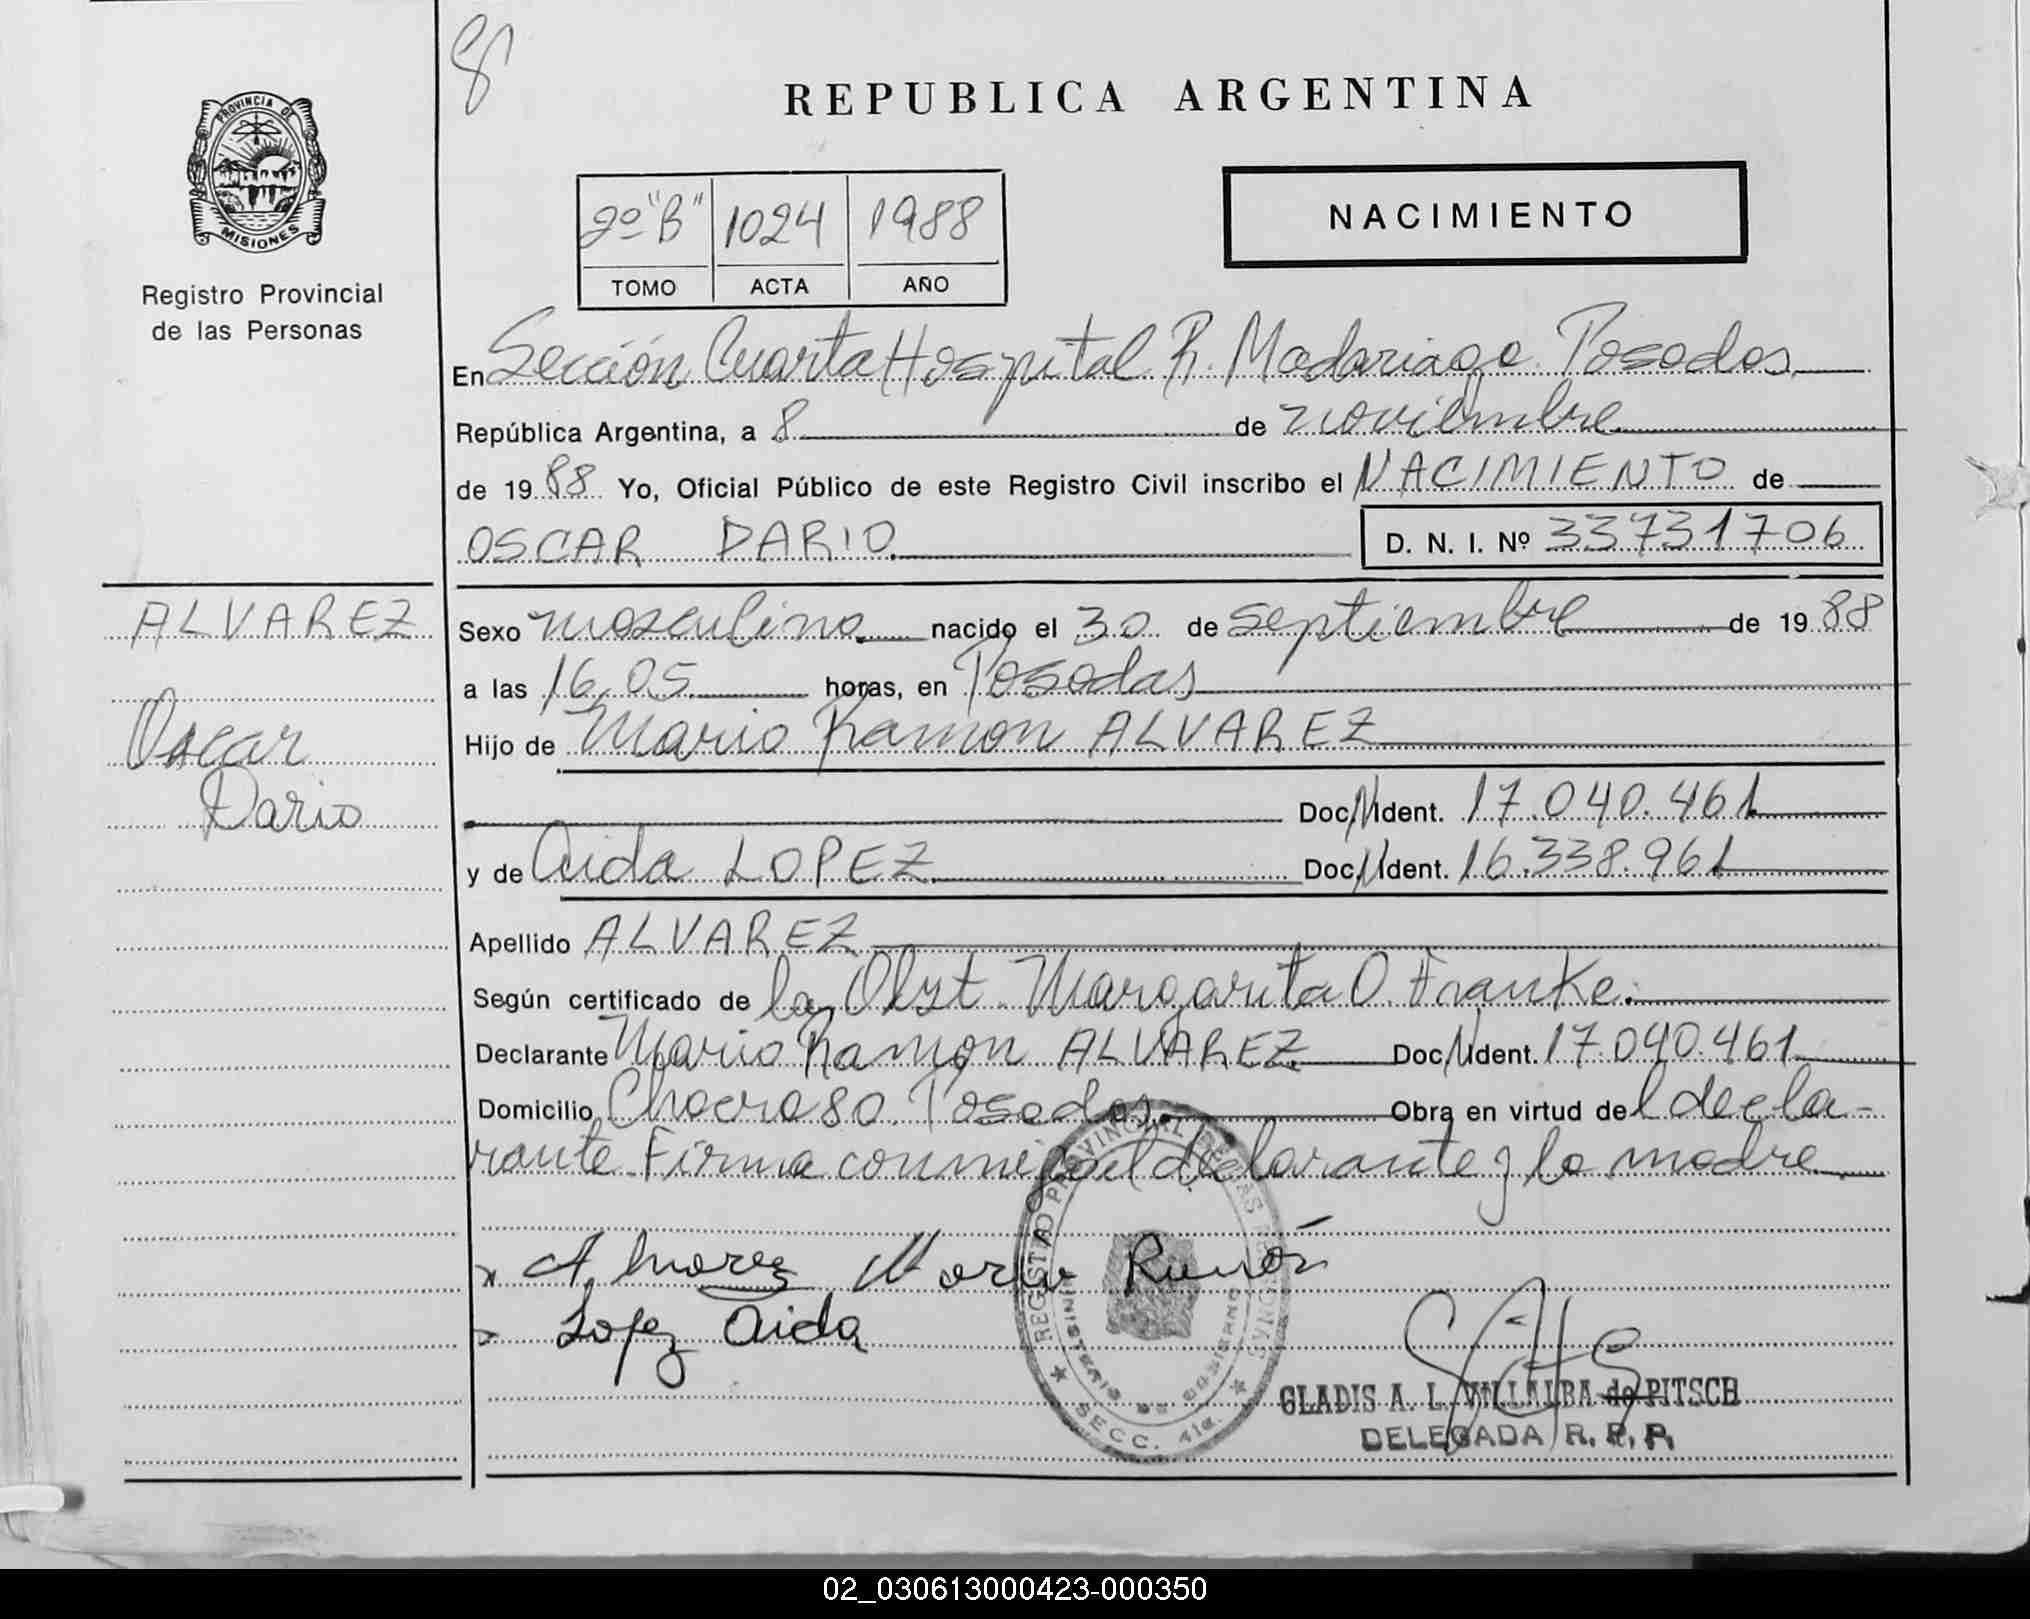 8
REPUBLICA ARGENTINA
PROVINCIA DE
MISIONES
Registro Provincial
de las Personas
2º "B" 1024 1988
TOMO ACTA AÑO
NACIMIENTO
En Sección Cuarta Hospital R. Madariaga Posadas
República Argentina, a 8 de noviembre
de 1988 Yo, Oficial Público de este Registro Civil inscribo el NACIMIENTO de
OSCAR DARIO D. N. I. Nº 33731706
ALVAREZ
Oscar
Dario
Sexo masculino nacido el 30 de septiembre de 1988
a las 16,05 horas, en Posadas
Hijo de Mario Ramon ALVAREZ
Doc. N. Ident. 17.040.461
y de Aida LOPEZ Doc. N. Ident. 16.338.961
Apellido ALVAREZ
Según certificado de la Obst. Margarita O. Franke.
Declarante Mario Ramon ALVAREZ Doc. N. Ident. 17.040.461
Domicilio Chacra 80. Posadas. Obra en virtud del decla-
rante Firma conmigo el declarante y la madre
x Alvarez Mario Ramón
x Lopez Aida
REGISTRO PROVINCIAL DE LAS PERSONAS
MINISTERIO DE GOBIERNO
SECC. 4ta.
GLADIS A. L. VILLALBA de PITSCH
DELEGADA R. P. P.
02_030613000423-000350